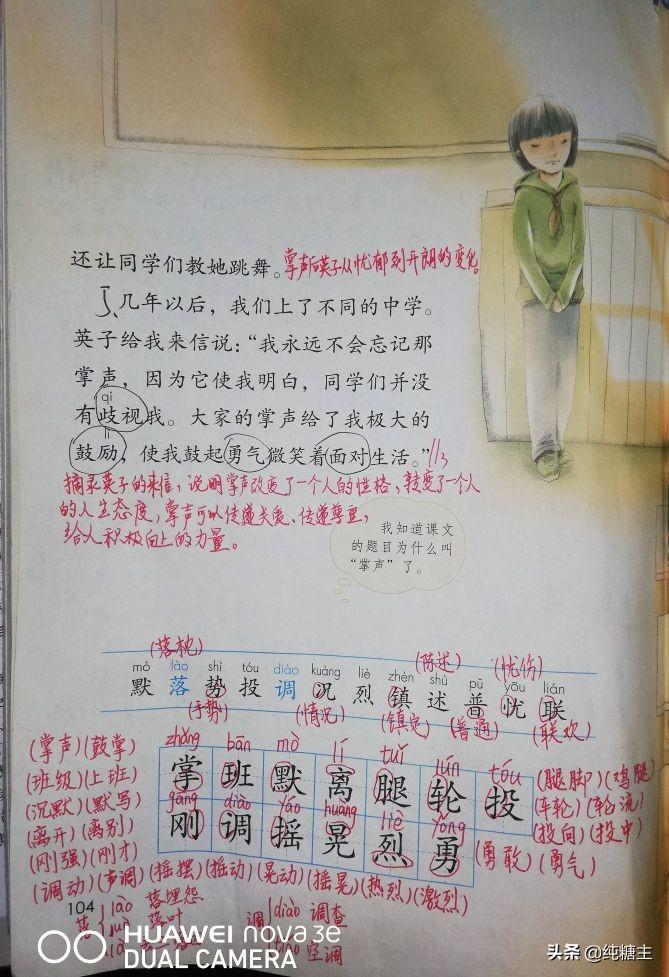 还让同学们教她跳舞。掌声后英子从忧郁到开朗的变化。
几年以后，我们上了不同的中学。
英子给我来信说：“我永远不会忘记那
掌声，因为它使我明白，同学们并没
qí
有歧视我。大家的掌声给了我极大的
lì
鼓励，使我鼓起勇气微笑着面对生活。”
摘录英子的来信，说明掌声改变了一个人的性格，转变了一个人
的人生态度，掌声可以传递关爱、传递尊重，
给人积极向上的力量。
我知道课文
的题目为什么叫
“掌声”了。
(落枕) (陈述) (忧伤)
mò lào shì tóu diào kuàng liè zhèn shù pǔ yōu lián
默 落 势 投 调 况 烈 镇 述 普 忧 联
(手势) (情况) (镇定) (普通) (联欢)
zhǎng bān mò lí tuǐ lún tóu
掌 班 默 离 腿 轮 投
gāng diào yáo huàng liè yǒng
刚 调 摇 晃 烈 勇
(掌声)(鼓掌)
(班级)(上班)
(沉默)(默写)
(离开)(离别)
(刚强)(刚才)
(调动)(声调)(摇摆)(摇动)(晃动)(摇晃)(热烈)(激烈)
(腿脚)(鸡腿)
(车轮)(轮流)
(投向)(投中)
(勇敢)(勇气)
104
落 lào 落埋怨
luò 落叶
调 diào 调查
tiáo 空调
HUAWEI nova 3e
DUAL CAMERA
头条 @纯糖主